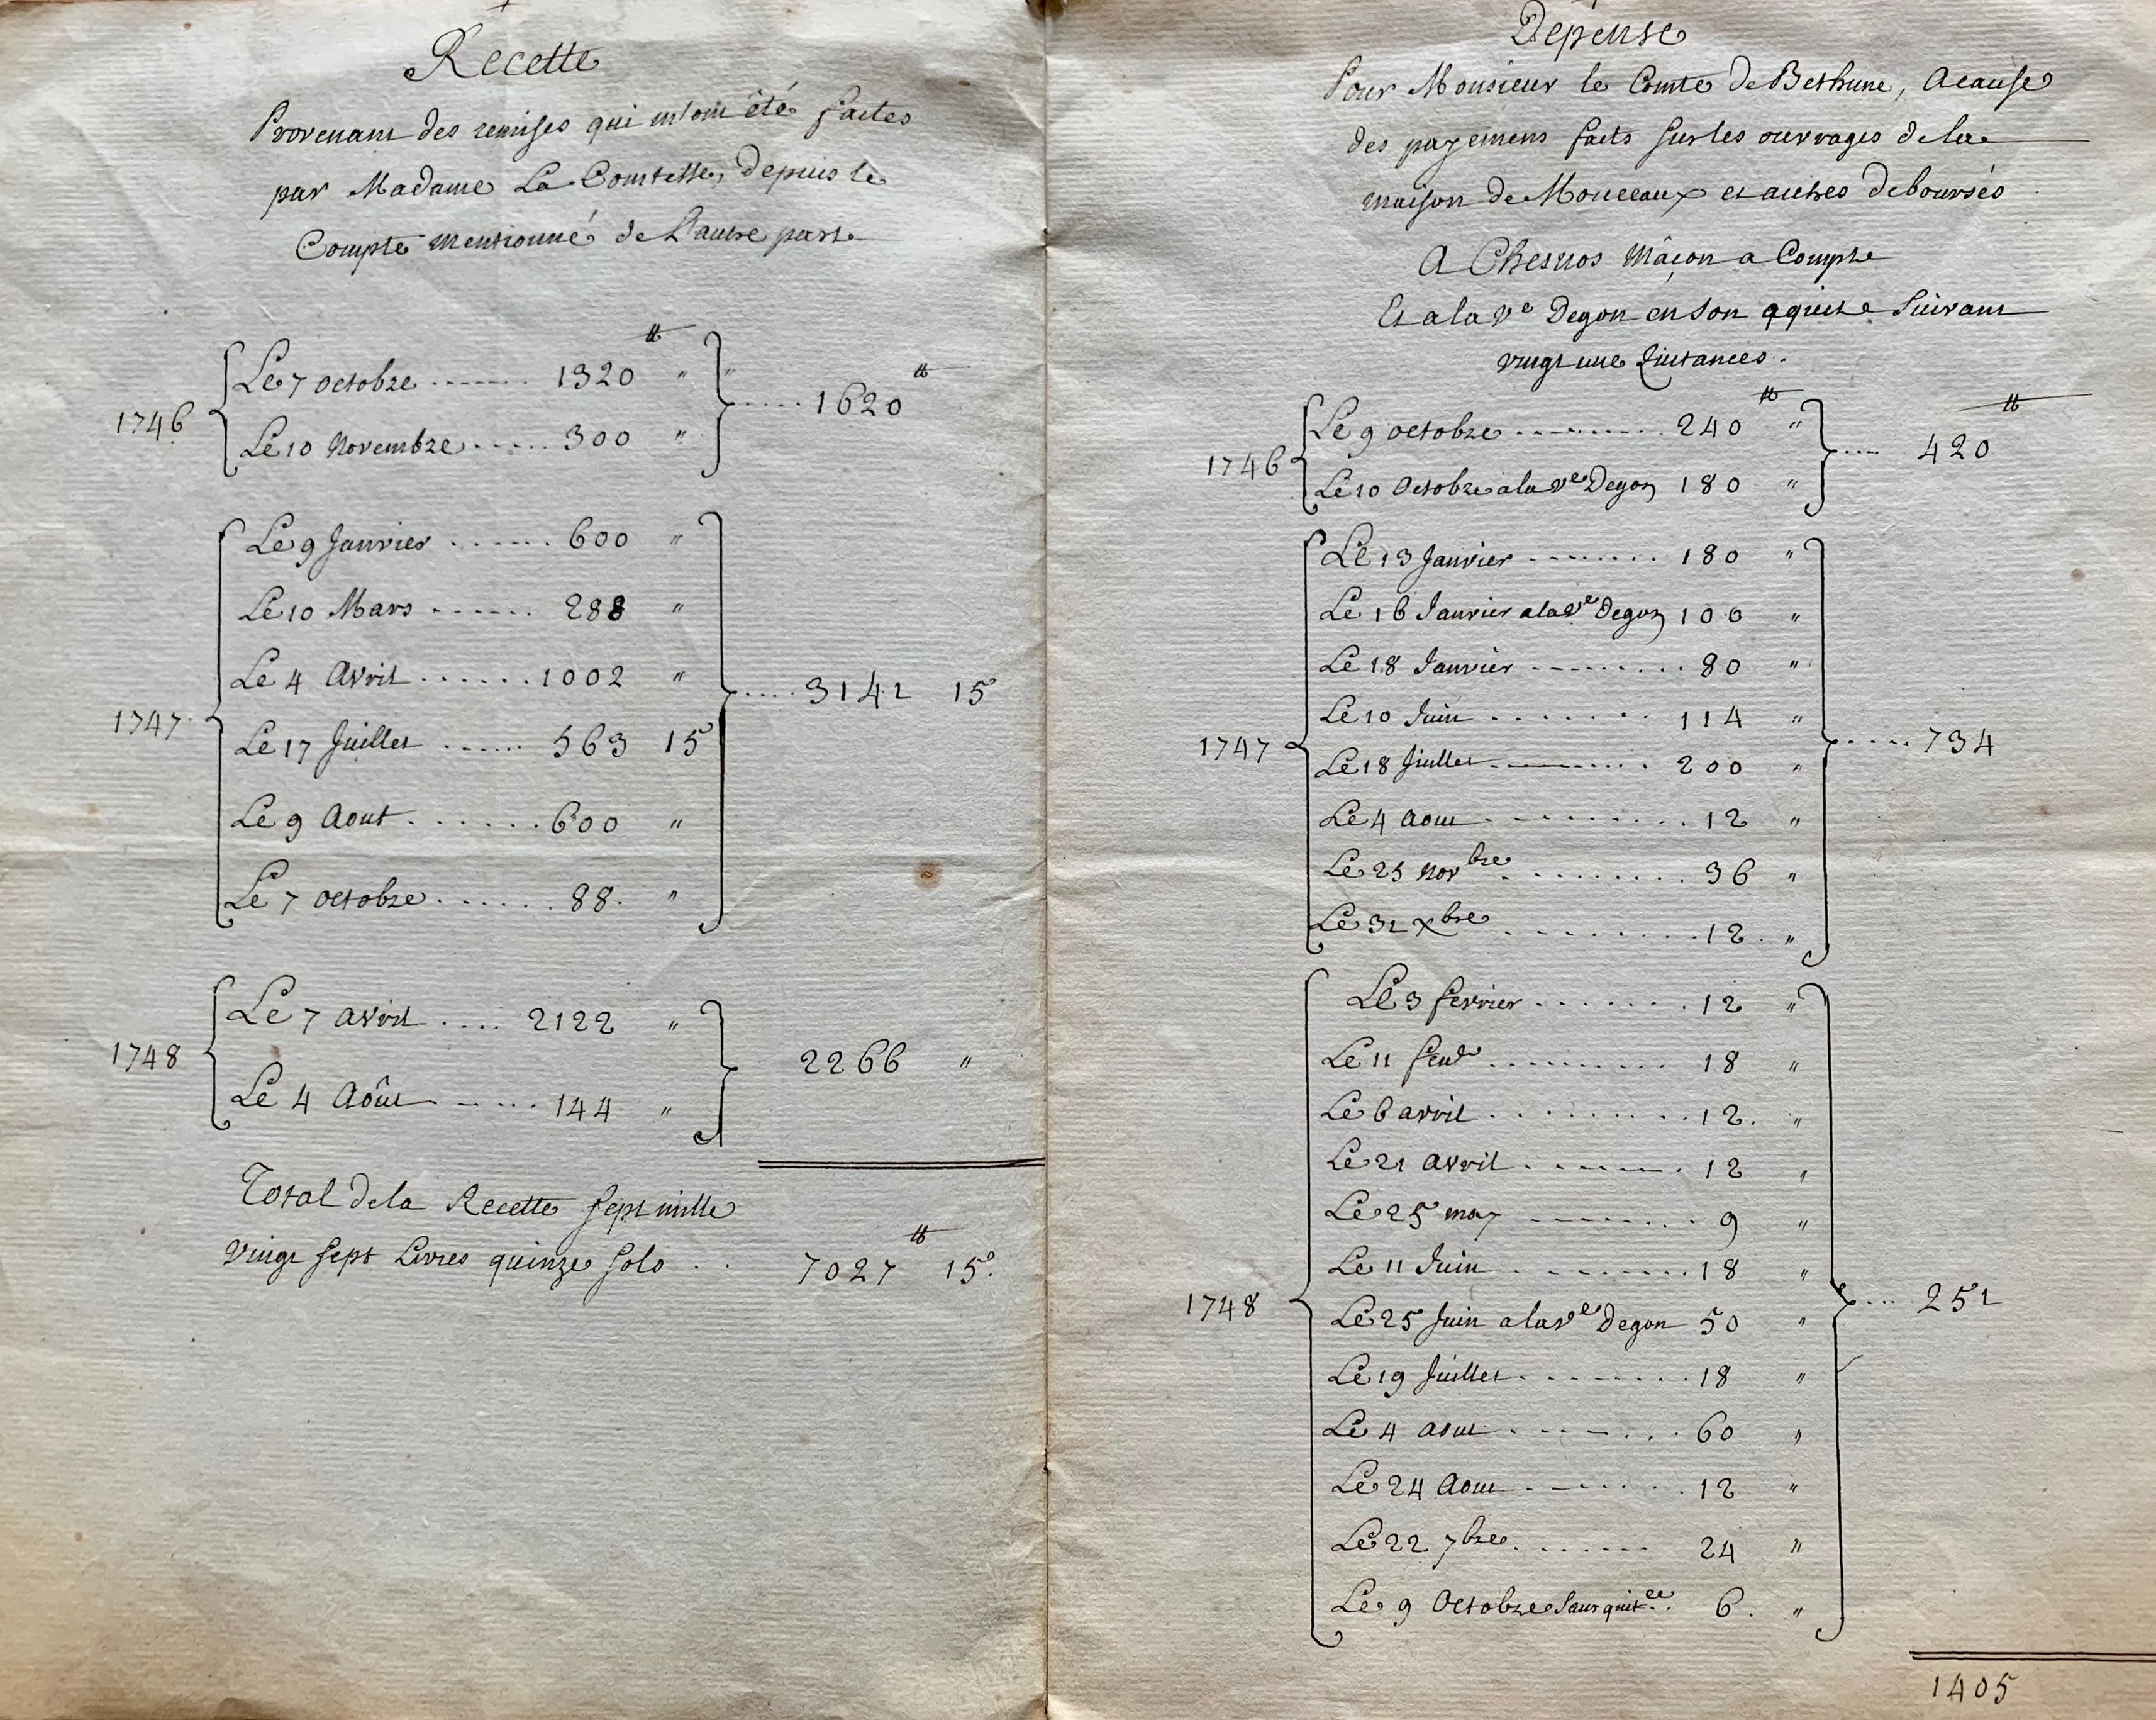 Recette
Provenant des remises qui m'ont été faites
par Madame La Comtesse, depuis le
Compte mentionné de L'autre part
1746
₶
Le 7 octobre ....... 1320 "
Le 10 Novembre ..... 300 "
..... 1620 ₶
1747
Le 9 Janvier ...... 600 "
Le 10 Mars ...... 288 "
Le 4 Avril ...... 1002 "
Le 17 Juillet ...... 563 15
Le 9 Aout ...... 600 "
Le 7 octobre ...... 88. "
.... 3141 15ˢ
1748
Le 7 avril .... 2122 "
Le 4 Aôut ..... 144 "
2266 "
Total de la Recette sept mille
vingt sept Livres quinze sols .. 7027 ₶ 15ˢ.
Dépense
Pour Monsieur le Comte de Bethune, acause
des payemens faits sur les ouvrages de la
maison de Mouceaux et autres deboursés
A Chesnos Mâçon a Compte
Et a la vᵉ Degon en son aquit Suivant
vingt une Quitances.
1746
₶
Le 9 octobre ......... 240 "
Le 10 Octobre a la vᵉ Degon 180 "
.... 420 ₶
1747
Le 13 Janvier ........ 180 "
Le 16 Janvier a la vᵉ Degon 100 "
Le 18 Janvier ......... 80 "
Le 10 Juin ........ 114 "
Le 18 Juillet ........ 200 "
Le 4 aout .......... 12 "
Le 25 Novᵇʳᵉ ......... 36 "
Le 31 xᵇʳᵉ ......... 12. "
..... 734
1748
Le 3 fevrier ........ 12 "
Le 11 feud. ......... 18 "
Le 6 avril ......... 12. "
Le 21 avril ........ 12 "
Le 25 may ......... 9 "
Le 11 Juin ......... 18 "
Le 25 Juin a la vᵉ Degon 50 "
Le 19 Juillet ........ 18 "
Le 4 aout ........ 60 "
Le 24 Aout ........ 12 "
Le 22 7ᵇʳᵉ ....... 24 "
Le 9 Octobre Sans quitᶜᵉ. 6. "
.... 251
1405